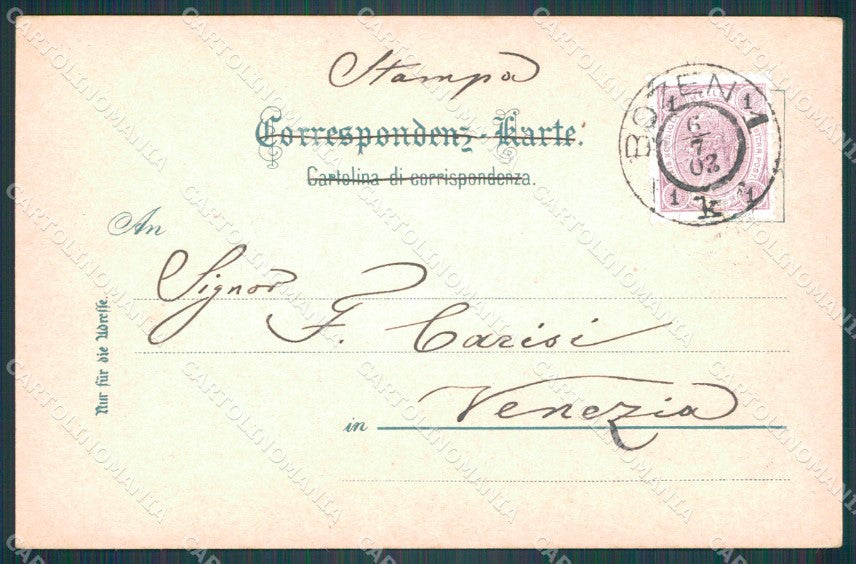 Stampa
Correspondenz-Karte.
Cartolina di corrispondenza.
BOZEN 1
6/7 02
k
1 1
1 1
An
Signor
F. Carisi
in Venezia
Nur für die Adresse.
CARTOLINOMANIA